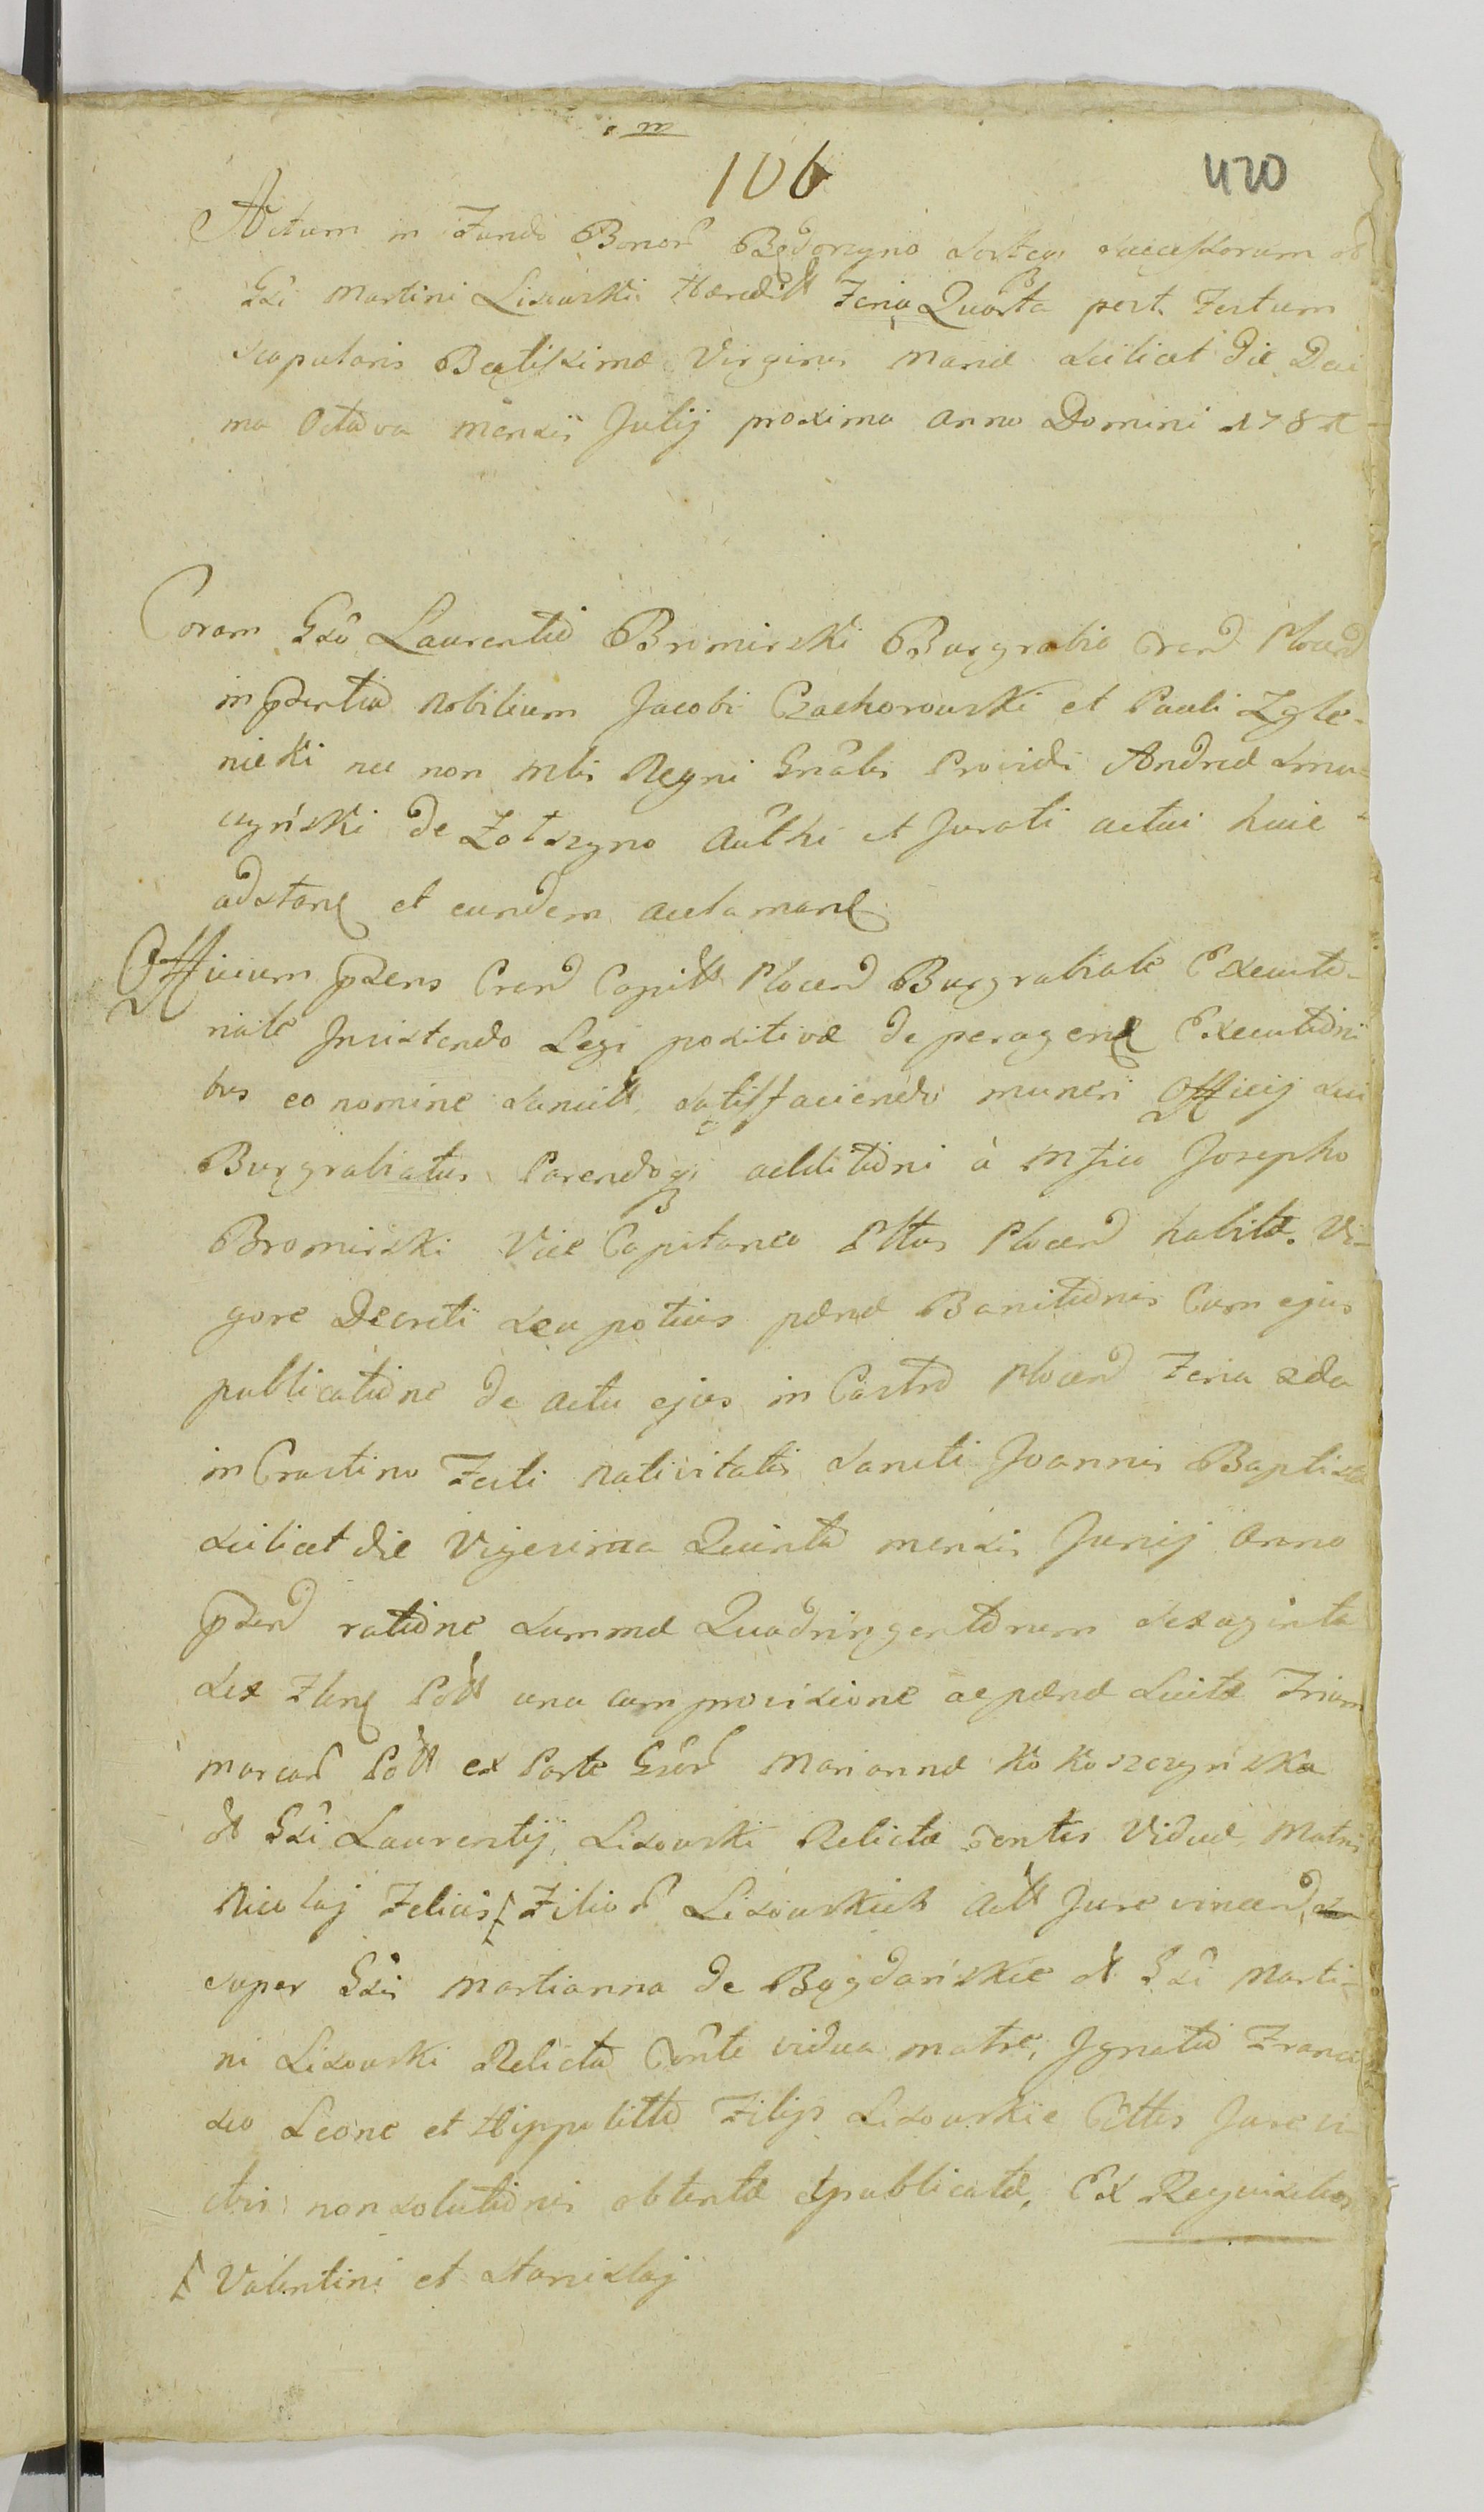 106
420
Actum in Fundo Bonor Bądorzyno Sortey Successorum
Gsi Martini Lisowski Hared Feria Quarta post Festum
Scapularis Beatissimæ Virginis Mariæ Scilicet die Deci
ma Octava Mensis Julij proxima Anno Domini
Coram Gso Laurentio Bromirski Burgrabio Cren Plocen
in psentia Nobilium Jacobi Czachorowski et Pauli Zgle-
nicki nec non Mlis Regni Gnalis Providi Andreæ Smu-
czyński de Zotszyno Authi et Jurati actui huic
adstan et eundem acclaman
Officium psens Cren Capit Plocen Burgrabiale Executo-
riale Insistendo Legi positivæ de peragen Executioni
bus eo nomine Sancit satisfaciendo muneri Officij sui
Burgrabiatus Parendoq additioni à Mfico Josepho
Bromirski Vice Capitaneo Pttus Plocen habitæ. Vi-
gore Decreti seu potius pænæ Banitionis Cum ejus
publicatione de actu ejus in Castro Plocen Feria 2da
in Crastino Festi Nativitatis Sancti Joannis Baptistæ
Scilicet die Vigesima Quinta mensis Junij Anno
psen ratione Summæ Quadringentorum Sexaginta
Sex Flen Pol una cum provisione ac pæna Luitæ Trium
marcar Pol ex Parte Gsor Mariannæ Kokoszczyńska
Gsi Laurentij Lisowski Relictæ Contis Viduæ Matris
Nicolaj Felicis Filior Lisowskich Act Jure vincen
super Gsis Martianna de Bogdańskie Gsi Marti-
ni Lisowski Relicta Conte vidua matre, Ignatio Franci
sco Leone et Hippolitto Filijs Lisowskie Cittis Jure vi
ctis non solutionis obtentæ et publicatæ, Ex Requisitione
Valentini et Stanislaj